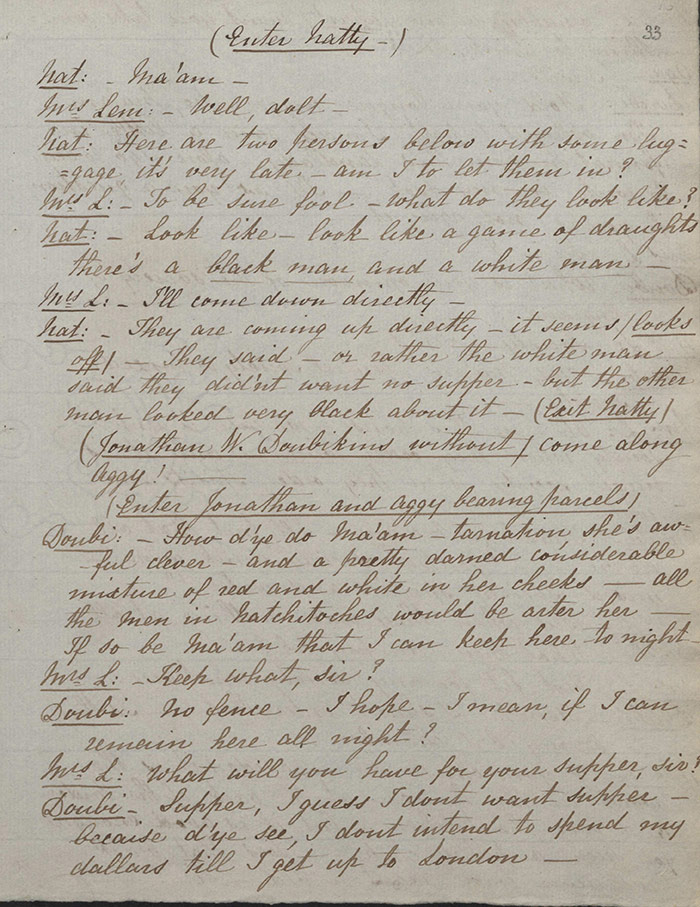 33
(Enter Natty -)
Nat: - Ma'am -
Mrs Lem: - Well, dolt -
Nat: Here are two persons below with some lug=
=gage, it's very late - am I to let them in?
Mrs L: - To be sure fool - what do they look like?
Nat: - Look like - look like a game of draughts
there's a black man, and a white man -
Mrs L: - I'll come down directly -
Nat: - They are coming up directly - it seems (looks
off) - They said - or rather the white man
said they did'nt want no supper - but the other
man looked very black about it - (Exit Natty)
(Jonathan W. Doubikins without) come along
Aggy! -
(Enter Jonathan and Aggy bearing parcels)
Doubi: - How d'ye do Ma'am - tarnation she's aw-
-ful clever - and a pretty darned considerable
mixture of red and white in her cheeks - all
the men in Natchitoches would be arter her -
If so be Ma'am that I can keep here to night -
Mrs L: - Keep what, sir?
Doubi: No fence - I hope - I mean, if I can
remain here all night?
Mrs L: What will you have for your supper, sir?
Doubi - Supper, I guess I dont want supper -
because d'ye see, I dont intend to spend my
dollars till I get up to London -